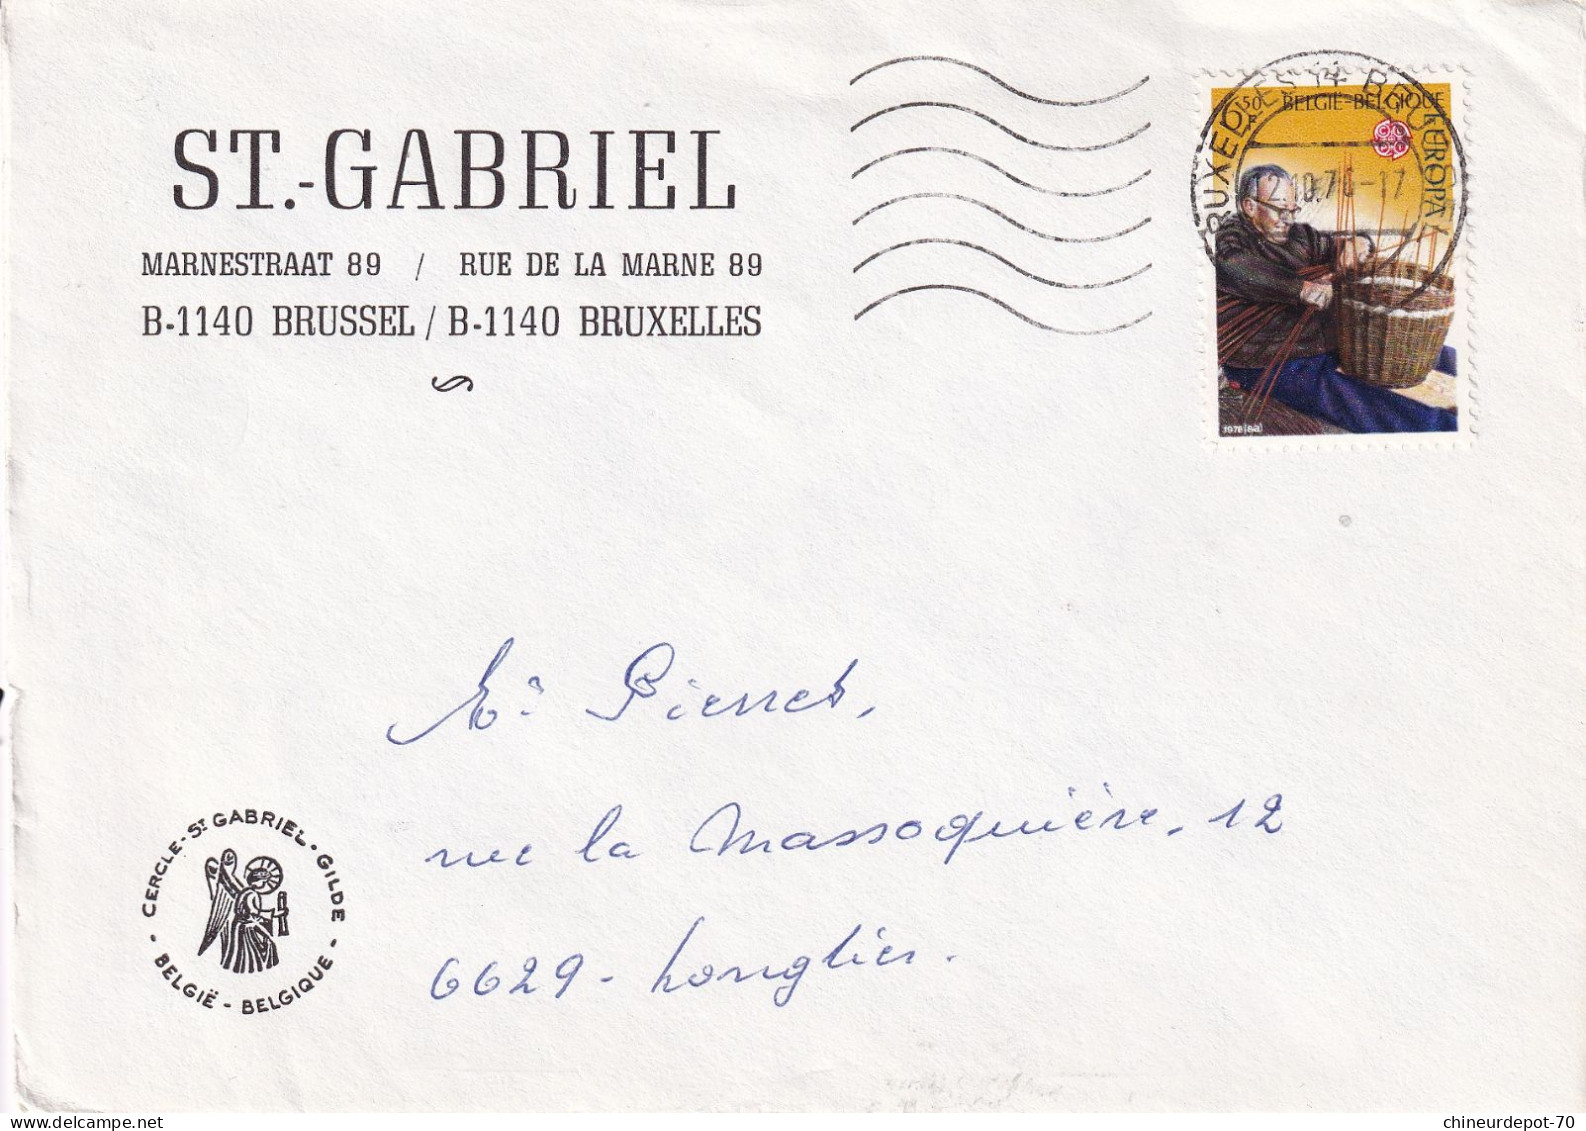 ST.-GABRIEL
MARNESTRAAT 89 / RUE DE LA MARNE 89
B-1140 BRUSSEL / B-1140 BRUXELLES
BRUXELLES 14 BRUSSEL
12.10.7 -17
50
F
BELGIË-BELGIQUE
EUROPA
1978
Mr Pierret,
rue la Massoquière, 12
6629 - Longlier.
CERCLE - ST GABRIEL - GILDE
- BELGIË - BELGIQUE -
chineurdepot-70